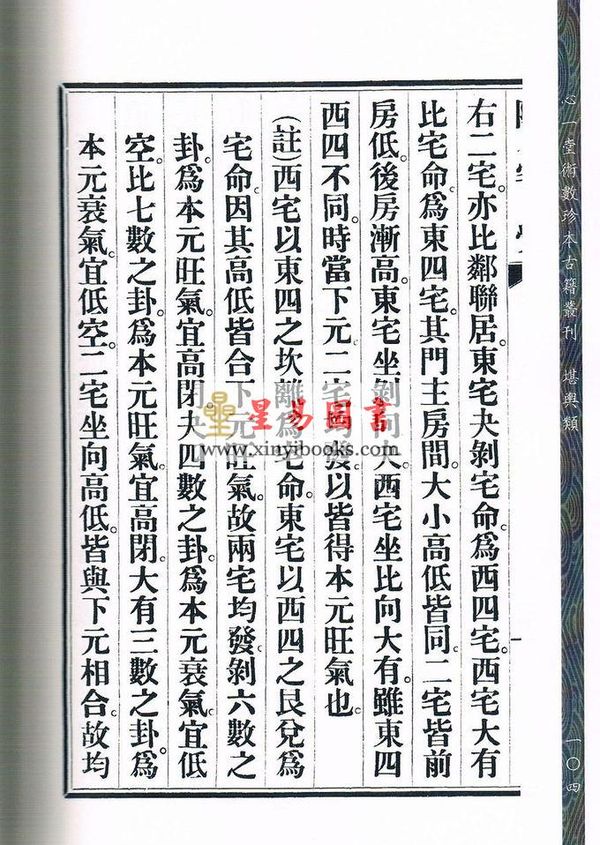 心一堂術數珍本古籍叢刊 堪輿類
一〇四
右二宅。亦比鄰聯居。東宅夬剝宅命。爲西四宅。西宅大有
比宅命。爲東四宅。其門主房間。大小高低皆同。二宅皆前
房低。後房漸高。東宅坐剝向夬。西宅坐比向大有。雖東四
西四不同。時當下元。二宅均發。以皆得本元旺氣也。
(註)西宅以東四之坎離爲宅命。東宅以西四之艮兌爲
宅命。因其高低皆合下元旺氣。故兩宅均發。剝六數之
卦。爲本元旺氣。宜高閉。夬四數之卦。爲本元衰氣。宜低
空。比七數之卦。爲本元旺氣。宜高閉。大有三數之卦。爲
本元衰氣。宜低空。二宅坐向高低。皆與下元相合。故均
星易圖書
www.xinyibooks.com